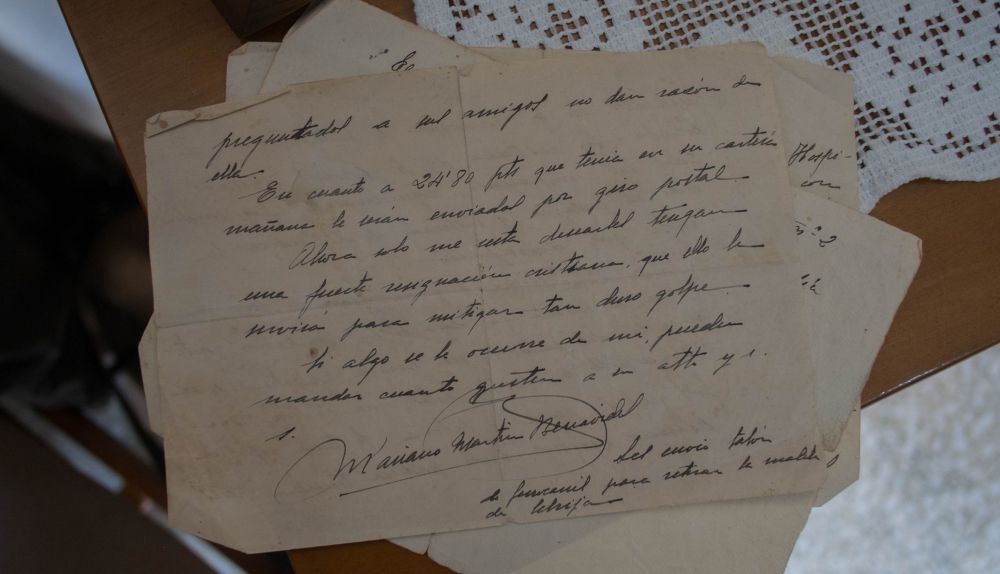 preguntados a sus amigos no dan razón de
ella.
En cuanto a 24'80 pts que tenia en su cartera
mañana le serán enviadas por giro postal.
Ahora solo me resta desearles tengan
una fuerte resignación cristiana, que ello le
servirá para mitigar tan duro golpe.
Si algo se le ocurre de mi, pueden
mandar cuanto gusten a su atto y s.
s.
Mariano Martin Benavides
Les envio talón
de ferrocarril para retirar la maleta y
de
Hospi-
con